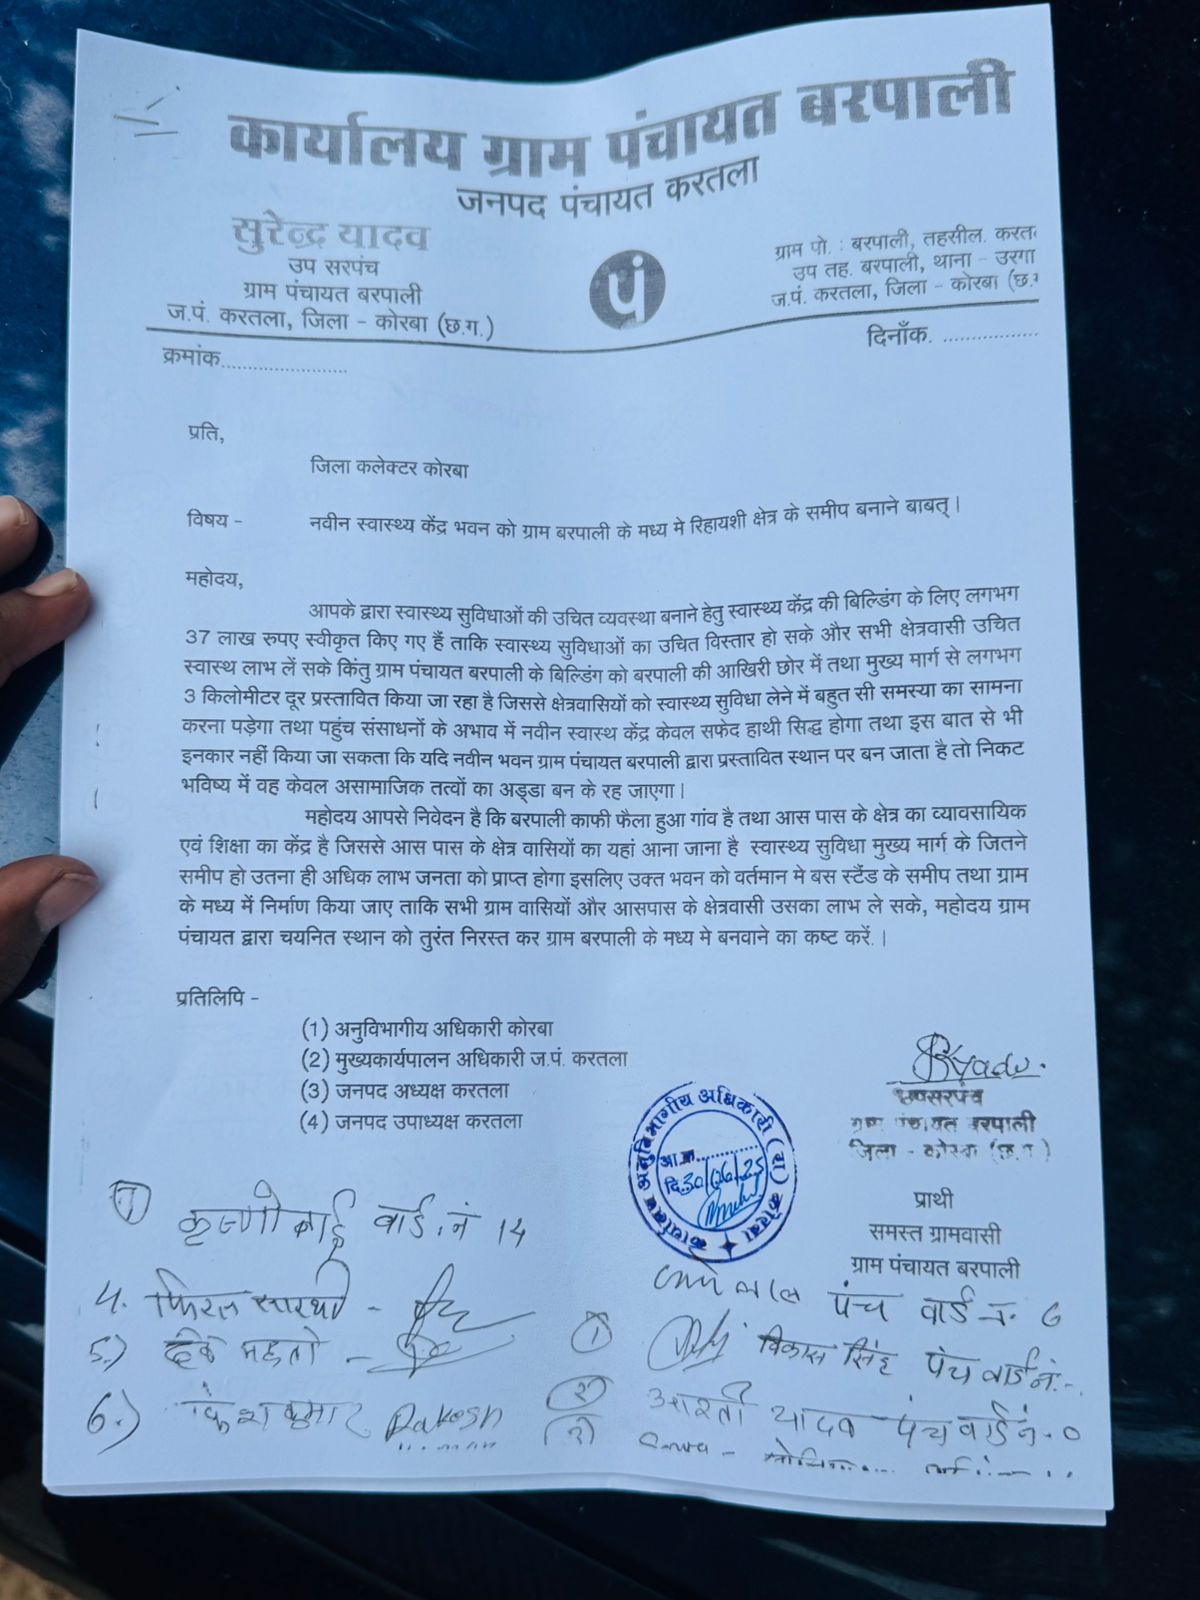 कार्यालय ग्राम पंचायत बरपाली
जनपद पंचायत करतला
सुरेन्द्र यादव
उप सरपंच
ग्राम पंचायत बरपाली
ज.पं. करतला, जिला - कोरबा (छ.ग.)
पं
ग्राम पो. : बरपाली, तहसील. करत
उप तह. बरपाली, थाना - उरगा
ज.पं. करतला, जिला - कोरबा (छ.
क्रमांक........................
दिनाँक. ...............
प्रति,
जिला कलेक्टर कोरबा
विषय - नवीन स्वास्थ्य केंद्र भवन को ग्राम बरपाली के मध्य मे रिहायशी क्षेत्र के समीप बनाने बाबत् |
महोदय,
आपके द्वारा स्वास्थ्य सुविधाओं की उचित व्यवस्था बनाने हेतु स्वास्थ्य केंद्र की बिल्डिंग के लिए लगभग
37 लाख रुपए स्वीकृत किए गए हैं ताकि स्वास्थ्य सुविधाओं का उचित विस्तार हो सके और सभी क्षेत्रवासी उचित
स्वास्थ लाभ लें सके किंतु ग्राम पंचायत बरपाली के बिल्डिंग को बरपाली की आखिरी छोर में तथा मुख्य मार्ग से लगभग
3 किलोमीटर दूर प्रस्तावित किया जा रहा है जिससे क्षेत्रवासियों को स्वास्थ्य सुविधा लेने में बहुत सी समस्या का सामना
करना पड़ेगा तथा पहुंच संसाधनों के अभाव में नवीन स्वास्थ केंद्र केवल सफेद हाथी सिद्ध होगा तथा इस बात से भी
इनकार नहीं किया जा सकता कि यदि नवीन भवन ग्राम पंचायत बरपाली द्वारा प्रस्तावित स्थान पर बन जाता है तो निकट
भविष्य में वह केवल असामाजिक तत्वों का अड्डा बन के रह जाएगा |
महोदय आपसे निवेदन है कि बरपाली काफी फैला हुआ गांव है तथा आस पास के क्षेत्र का व्यावसायिक
एवं शिक्षा का केंद्र है जिससे आस पास के क्षेत्र वासियों का यहां आना जाना है स्वास्थ्य सुविधा मुख्य मार्ग के जितने
समीप हो उतना ही अधिक लाभ जनता को प्राप्त होगा इसलिए उक्त भवन को वर्तमान मे बस स्टैंड के समीप तथा ग्राम
के मध्य में निर्माण किया जाए ताकि सभी ग्राम वासियों और आसपास के क्षेत्रवासी उसका लाभ ले सके, महोदय ग्राम
पंचायत द्वारा चयनित स्थान को तुरंत निरस्त कर ग्राम बरपाली के मध्य मे बनवाने का कष्ट करें. |
प्रतिलिपि -
(1) अनुविभागीय अधिकारी कोरबा
(2) मुख्यकार्यपालन अधिकारी ज.पं. करतला
(3) जनपद अध्यक्ष करतला
(4) जनपद उपाध्यक्ष करतला
उपसरपंच
ग्राम पंचायत बरपाली
जिला - कोरबा (छ.ग.)
कार्यालय अनुविभागीय अधिकारी (रा) कोरबा
आ.क्र............
दि.30/06/25
प्रार्थी
समस्त ग्रामवासी
ग्राम पंचायत बरपाली
वार्ड नं 14
लाल पंच वार्ड नं. 6
4. फिरत सारथी -
1 विकास सिंह पंच वार्ड नं.
5.) महतो -
2 आरती यादव पंच वार्ड नं.
6.) Rakesh